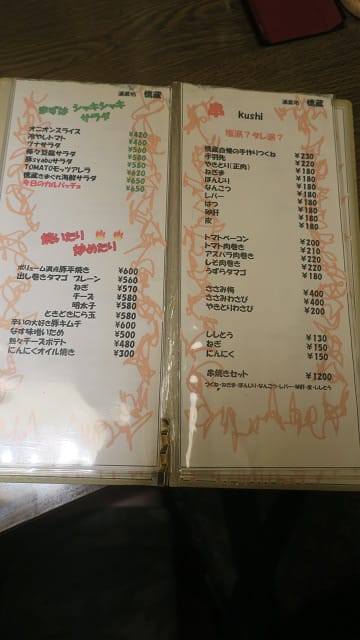 酒蔵場 橋蔵
まずは シャキシャキ
サラダ
オニオンスライス ¥420
冷やしトマト ¥460
ツナサラダ ¥560
豚syabuサラダ ¥580
TOMATOモッツアレラ ¥620
橋蔵きまぐれ海鮮サラダ ¥650
今日のカルパッチョ ¥650
焼いたり
炒めたり
ボリューム満点豚平焼き ¥600
出し巻きタマゴ プレーン ¥560
ねぎ ¥570
チーズ ¥580
明太子 ¥580
ときどきにら玉 ¥580
辛いの大好き豚キムチ ¥600
なす味噌いため ¥500
熱々チーズポテト ¥480
にんにくオイル焼き ¥300
橋蔵
串 kushi
塩派？タレ派？
橋蔵自慢の手作りつくね ¥230
手羽先 ¥220
やきとり(正肉) ¥180
ねぎま ¥180
ぼんじり ¥180
なんこつ ¥180
レバー ¥180
はつ ¥180
砂肝 ¥180
皮 ¥180
トマトベーコン ¥200
トマト肉巻き ¥210
アスパラ肉巻き ¥220
しそ肉巻き ¥220
うずらタマゴ ¥180
ささみ梅 ¥400
ささみわさび ¥400
やきとりわさび ¥200
ししとう ¥130
ねぎ ¥150
にんにく ¥150
串焼きセット ¥1200
つくね・ねぎま・ぼんじり・なんこつ・レバー・砂肝・皮・ししとう